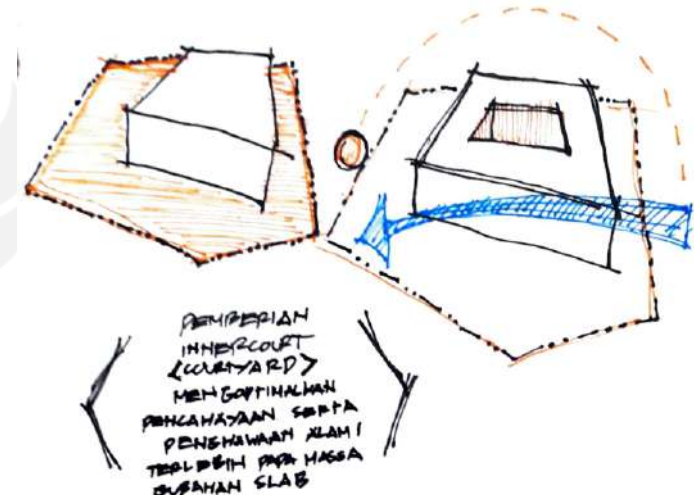 PEMBERIAN
INNERCOURT
<COURTYARD>
MENGOPTIMALKAN
PENCAHAYAAN SERTA
PENGHAWAAN ALAMI
TERLEBIH PADA MASSA
GUBAHAN SLAB